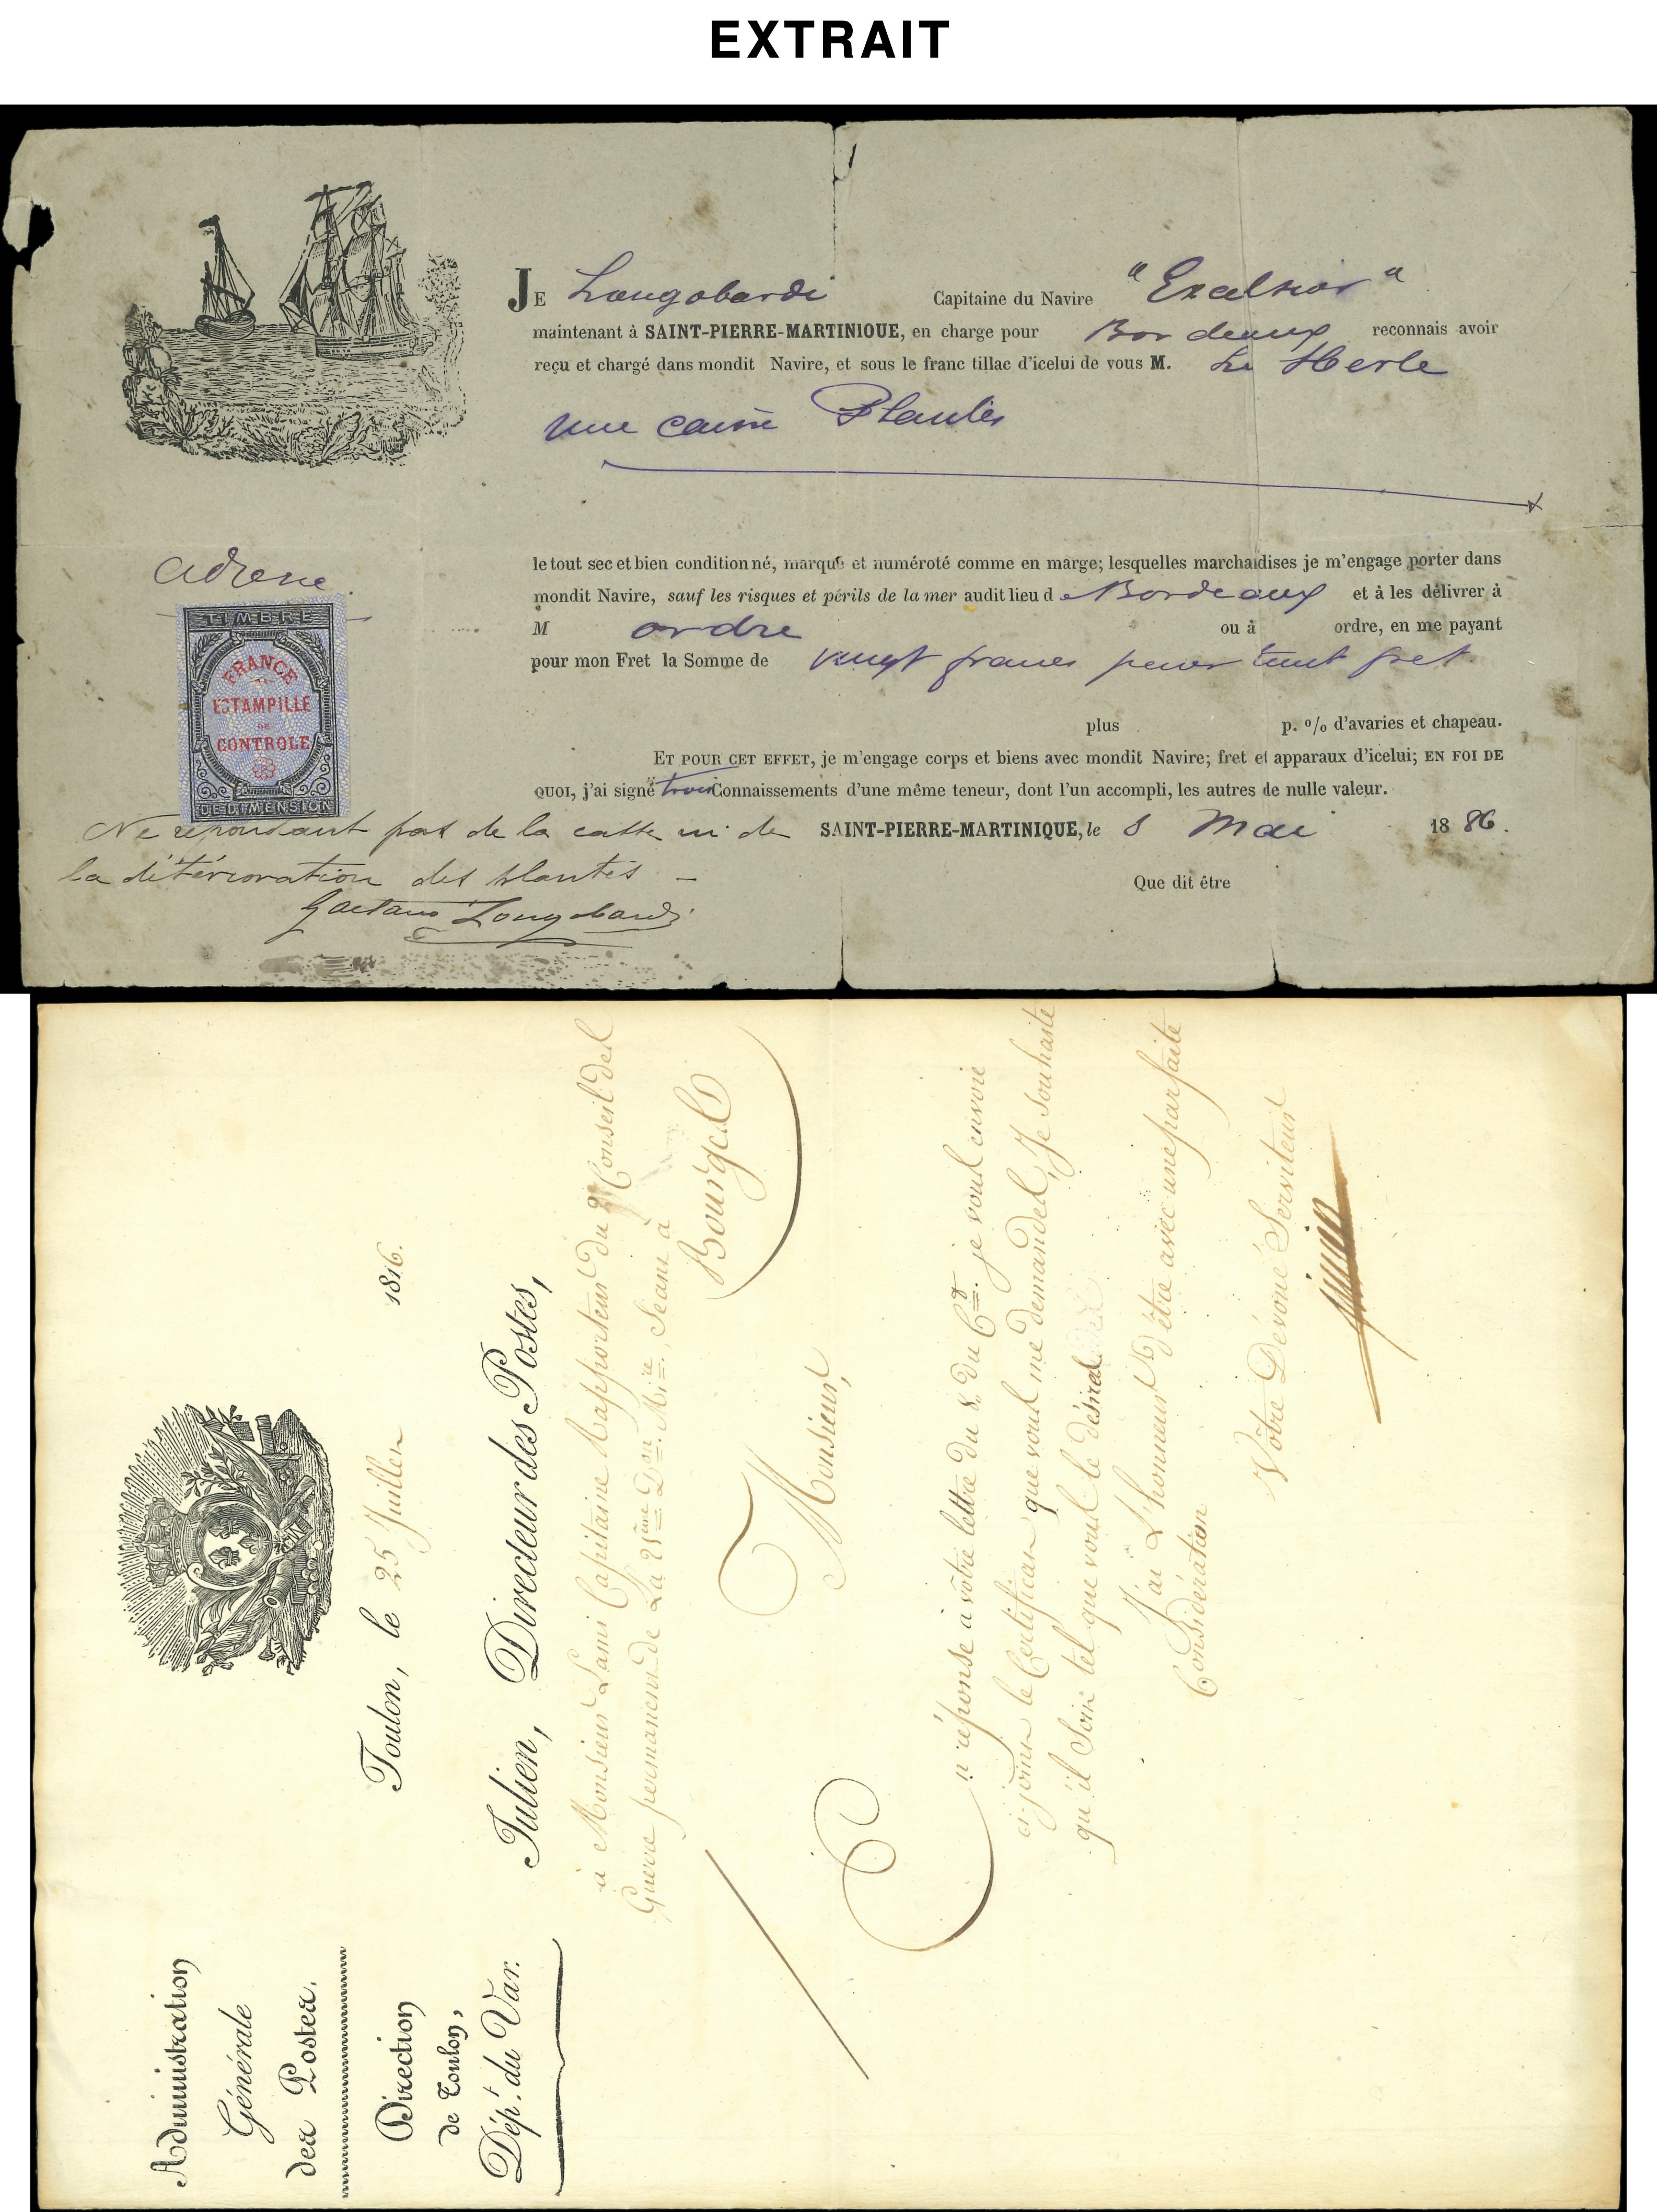 EXTRAIT
JE Longobardi Capitaine du Navire "Excelsior"
maintenant à SAINT-PIERRE-MARTINIQUE, en charge pour Bordeaux reconnais avoir
reçu et chargé dans mondit Navire, et sous le franc tillac d'icelui de vous M. Le Herle
une caisse Plantes
le tout sec et bien conditionné, marqué et numéroté comme en marge; lesquelles marchaidises je m'engage porter dans
mondit Navire, sauf les risques et périls de la mer audit lieu de Bordeaux et à les délivrer à
M ordre ou à ordre, en me payant
pour mon Fret la Somme de vingt francs pour tout fret
plus p. % d'avaries et chapeau.
ET POUR CET EFFET, je m'engage corps et biens avec mondit Navire; fret et apparaux d'icelui; EN FOI DE
QUOI, j'ai signé trois Connaissements d'une même teneur, dont l'un accompli, les autres de nulle valeur.
SAINT-PIERRE-MARTINIQUE, le 8 Mai 1886.
Que dit être
adresse
TIMBRE
FRANCE
ESTAMPILLE
DE
CONTROLE
DE DIMENSION
Ne répondant pas de la casse ni de
la détérioration des plantes –
Gaetano Longobardi
Administration
Générale
des Postes.
Direction
de Toulon,
Dép.t du Var.
Toulon, le 25 Juillet 1816.
Julien, Directeur des Postes,
à Monsieur Lami Capitaine Rapporteur du 2e Conseil de
Guerre permanent de La 21ème Don Mire, Séant à
Bourges
Monsieur,
En réponse à vôtre lettre du 8 du Ct. je vous envoie
ci-joint le Certificat que vous me demandez, Je souhaite
qu'il Soit tel que vous le désirez.
J'ai L'honneur d'être avec une parfaite
Considération
Vôtre Dévoué Serviteur
Julien